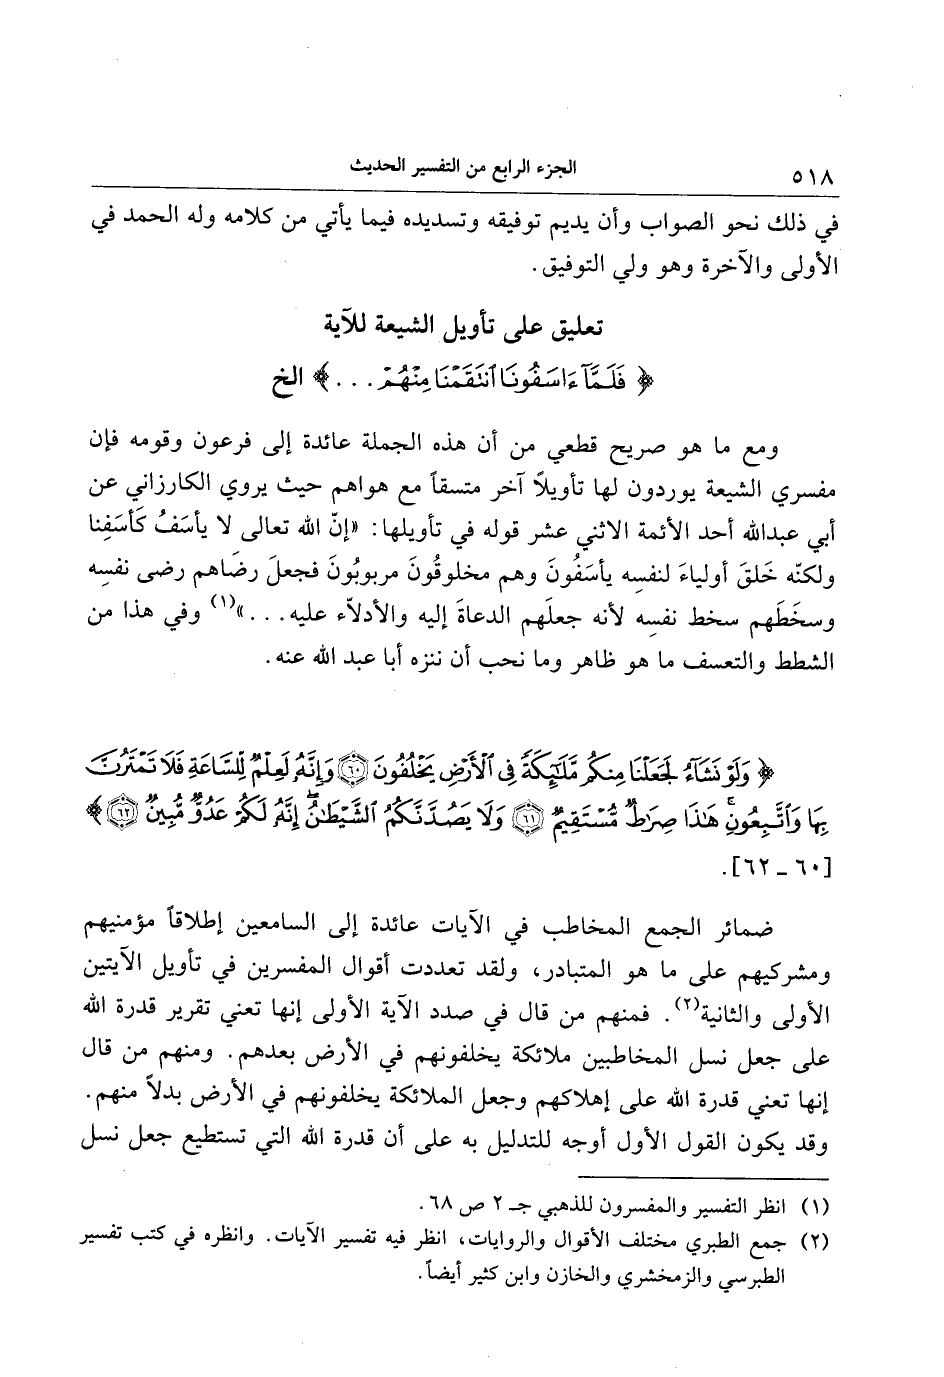 ٥١٨
الجزء الرابع من التفسير الحديث
في ذلك نحو الصواب وأن يديم توفيقه وتسديده فيما يأتي من كلامه وله الحمد في
الأولى والآخرة وهو ولي التوفيق.
تعليق على تأويل الشيعة للآية
﴿ فَلَمَّآ ءَاسَفُونَا ٱنتَقَمْنَا مِنْهُمْ . . . ﴾ الخ
ومع ما هو صريح قطعي من أن هذه الجملة عائدة إلى فرعون وقومه فإن
مفسري الشيعة يوردون لها تأويلاً آخر متسقاً مع هواهم حيث يروي الكارزاني عن
أبي عبدالله أحد الأئمة الاثني عشر قوله في تأويلها: «إنّ الله تعالى لا يأسَفُ كَأسَفِنا
ولكنّه خَلقَ أولياءَ لنفسِه يأسَفُونَ وهم مخلوقُونَ مربوبُونَ فجعلَ رضَاهم رضى نفسِه
وسخَطَهم سخط نفسِه لأنه جعلَهم الدعاةَ إليه والأدلاّء عليه. . .»(١) وفي هذا من
الشطط والتعسف ما هو ظاهر وما نحب أن ننزه أبا عبد الله عنه.
﴿ وَلَوْ نَشَآءُ لَجَعَلْنَا مِنكُم مَّلَٰٓئِكَةً فِى ٱلْأَرْضِ يَخْلُفُونَ ٦٠ وَإِنَّهُۥ لَعِلْمٌ لِّلسَّاعَةِ فَلَا تَمْتَرُنَّ
بِهَا وَٱتَّبِعُونِ ۚ هَٰذَا صِرَٰطٌ مُّسْتَقِيمٌ ٦١ وَلَا يَصُدَّنَّكُمُ ٱلشَّيْطَٰنُ ۖ إِنَّهُۥ لَكُمْ عَدُوٌّ مُّبِينٌ ٦٢ ﴾
[٦٠ - ٦٢].
ضمائر الجمع المخاطب في الآيات عائدة إلى السامعين إطلاقاً مؤمنيهم
ومشركيهم على ما هو المتبادر، ولقد تعددت أقوال المفسرين في تأويل الآيتين
الأولى والثانية(٢). فمنهم من قال في صدد الآية الأولى إنها تعني تقرير قدرة الله
على جعل نسل المخاطبين ملائكة يخلفونهم في الأرض بعدهم. ومنهم من قال
إنها تعني قدرة الله على إهلاكهم وجعل الملائكة يخلفونهم في الأرض بدلاً منهم.
وقد يكون القول الأول أوجه للتدليل به على أن قدرة الله التي تستطيع جعل نسل
(١) انظر التفسير والمفسرون للذهبي جـ ٢ ص ٦٨.
(٢) جمع الطبري مختلف الأقوال والروايات، انظر فيه تفسير الآيات. وانظره في كتب تفسير
الطبرسي والزمخشري والخازن وابن كثير أيضاً.